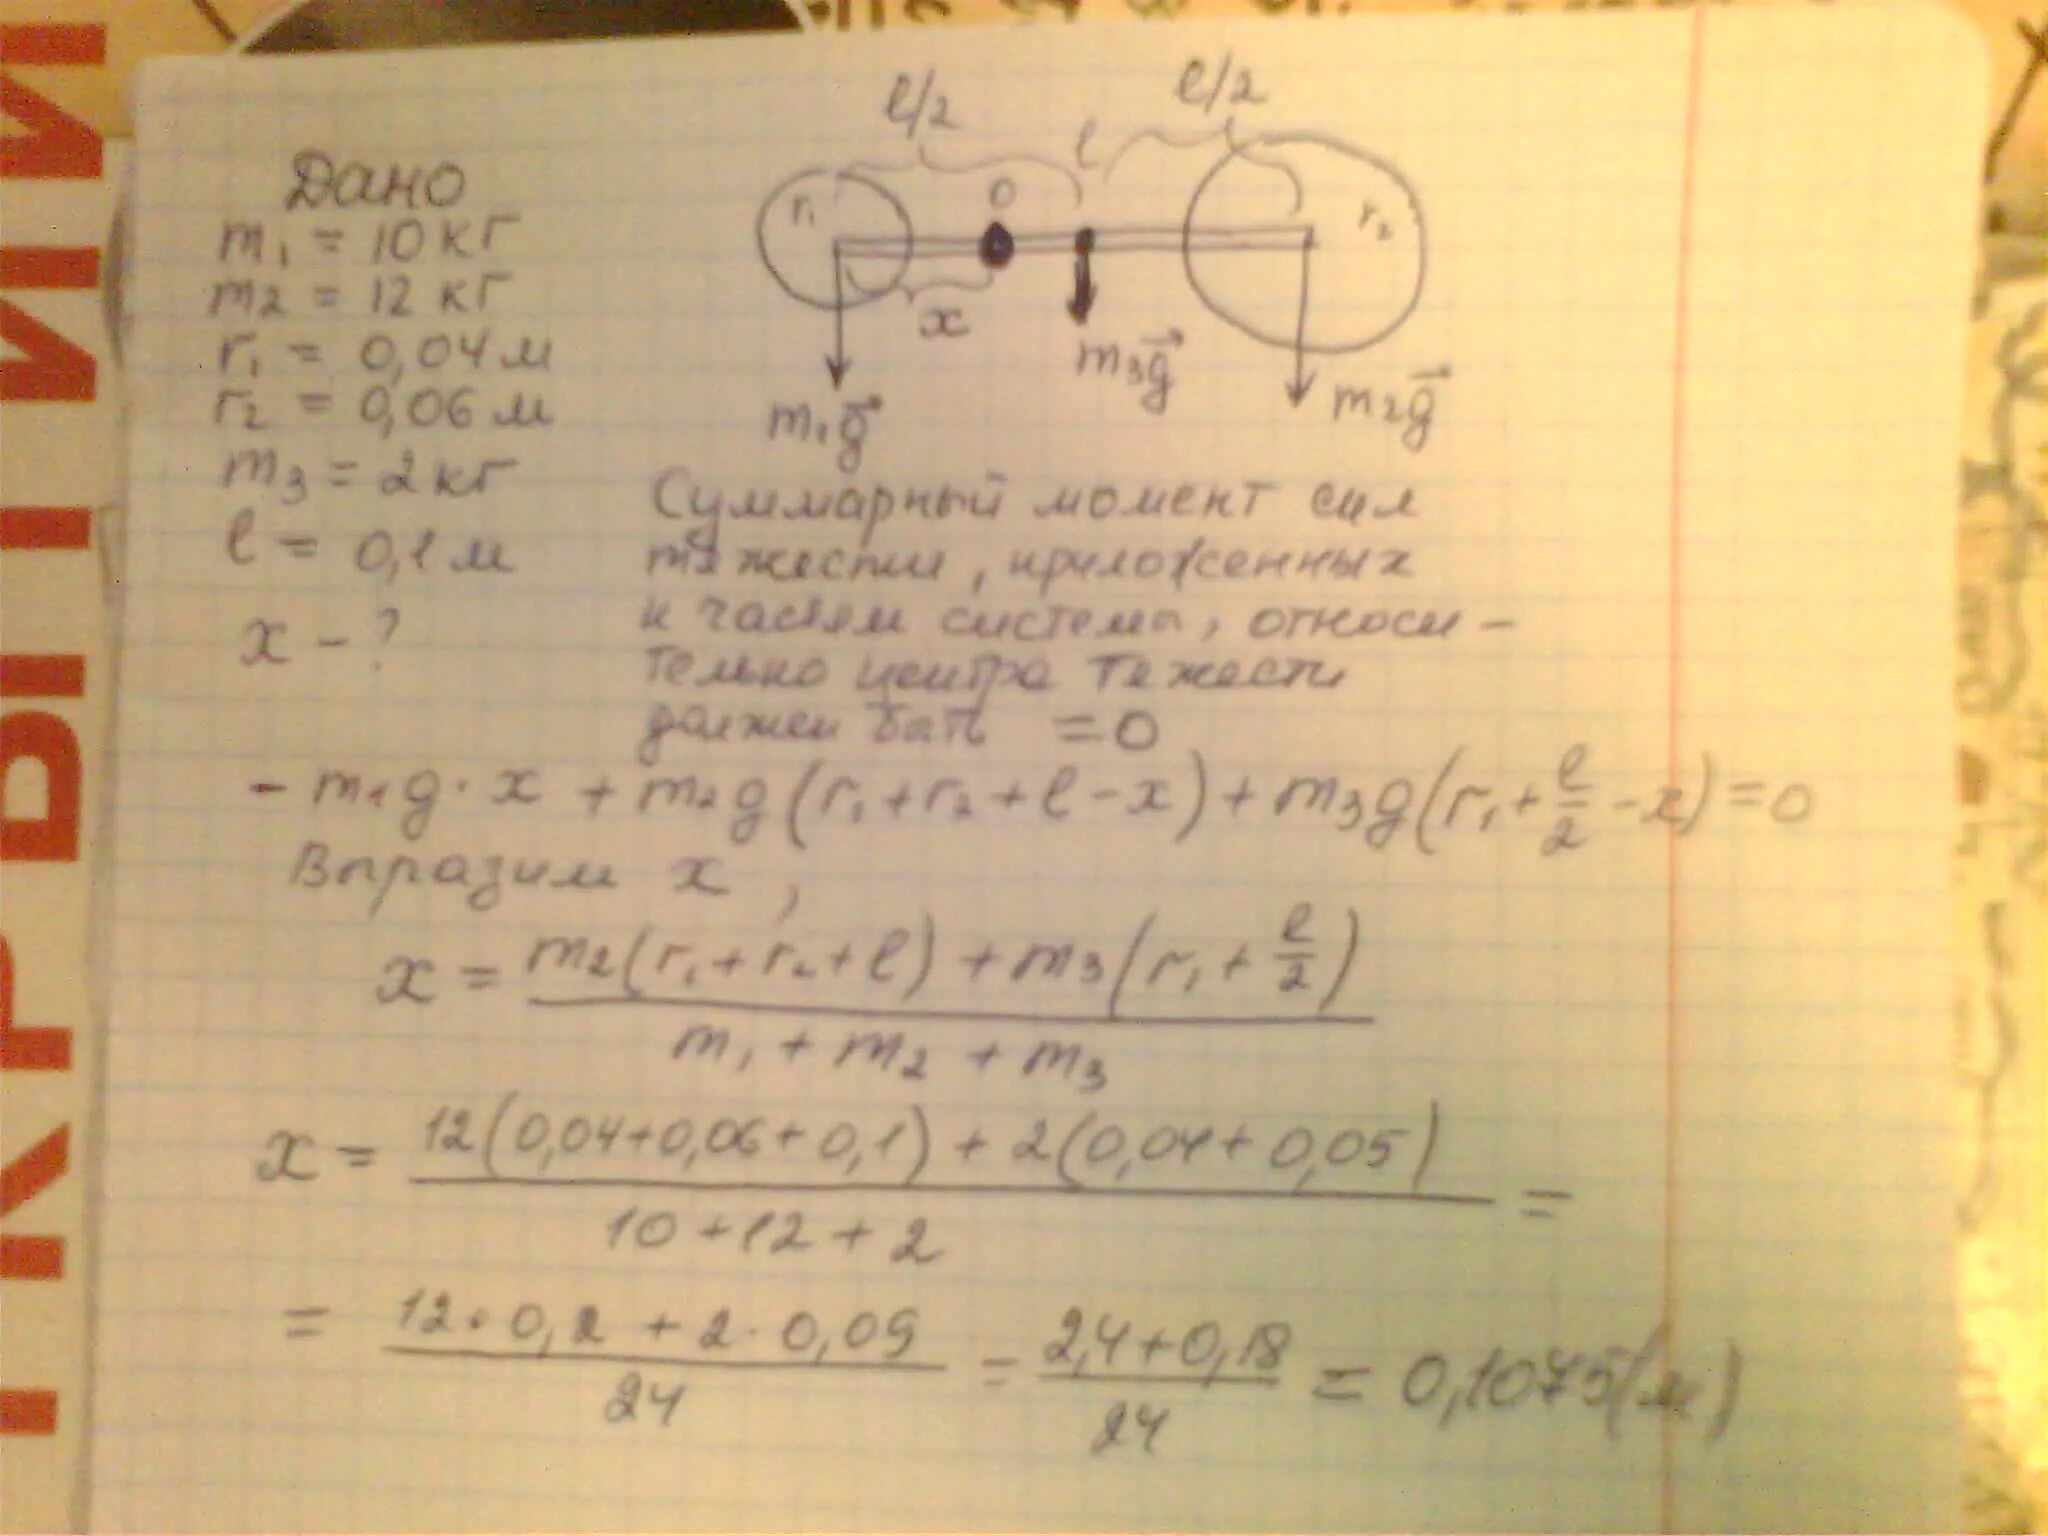 l/2
l/2
l
Дано
m₁ = 10 кг
m₂ = 12 кг
r₁ = 0,04 м
r₂ = 0,06 м
m₃ = 2 кг
l = 0,1 м
x - ?
r₁
0
r₂
x
m₁g⃗
m₃g⃗
m₂g⃗
Суммарный момент сил
тяжести, приложенных
к частям системы, относи-
тельно центра тяжести
должен быть = 0
- m₁g · x + m₂g (r₁ + r₂ + l - x) + m₃g (r₁ + l/2 - x) = 0
Выразим x,
x = (m₂(r₁ + r₂ + l) + m₃(r₁ + l/2)) / (m₁ + m₂ + m₃)
x = (12(0,04+0,06+0,1) + 2(0,04+0,05)) / (10+12+2) =
= (12·0,2 + 2·0,09) / 24 = (2,4+0,18) / 24 = 0,1075(м)